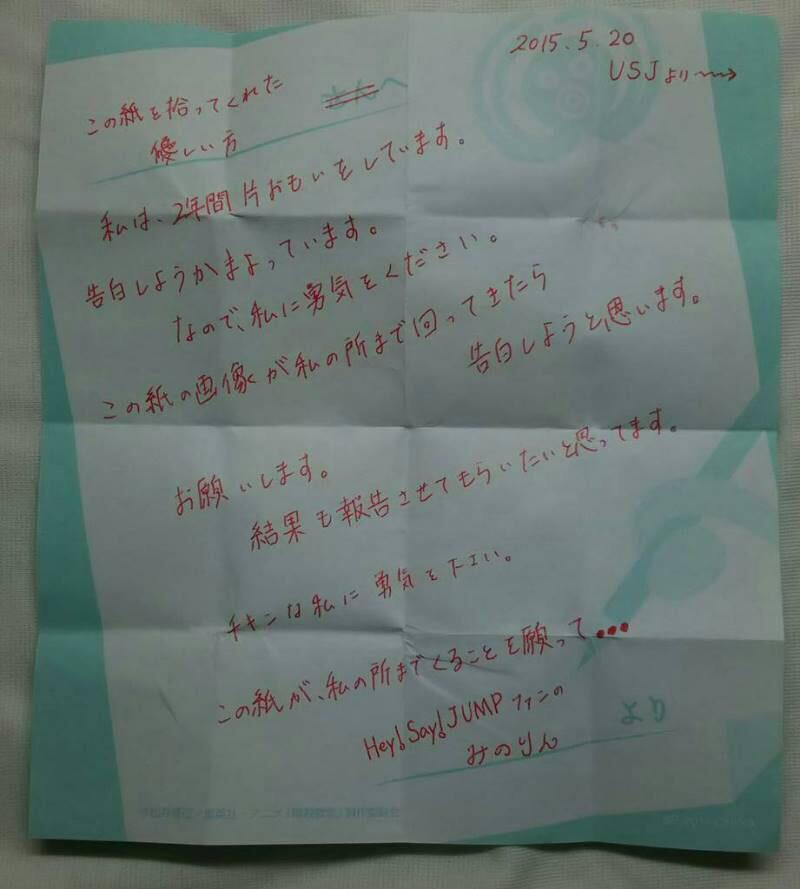 2015.5.20
USJより
この紙を拾ってくれた
さんへ
優しい方
私は、2年間片おもいをしています。
告白しようかまよっています。
なので、私に勇気をください。
この紙の画像が私の所まで回ってきたら
告白しようと思います。
お願いします。
結果も報告させてもらいたいと思ってます。
チキンな私に勇気を下さい。
この紙が、私の所までくることを願って•••
Hey!Say!JUMPファンの
より
みのりん